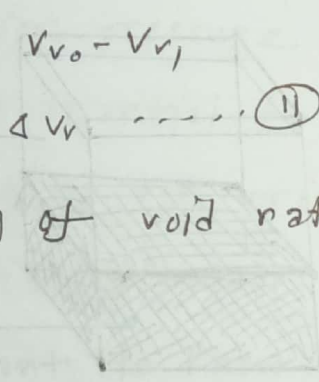 Vv₀ - Vv₁
Δ Vv ...... (11)
of void rat